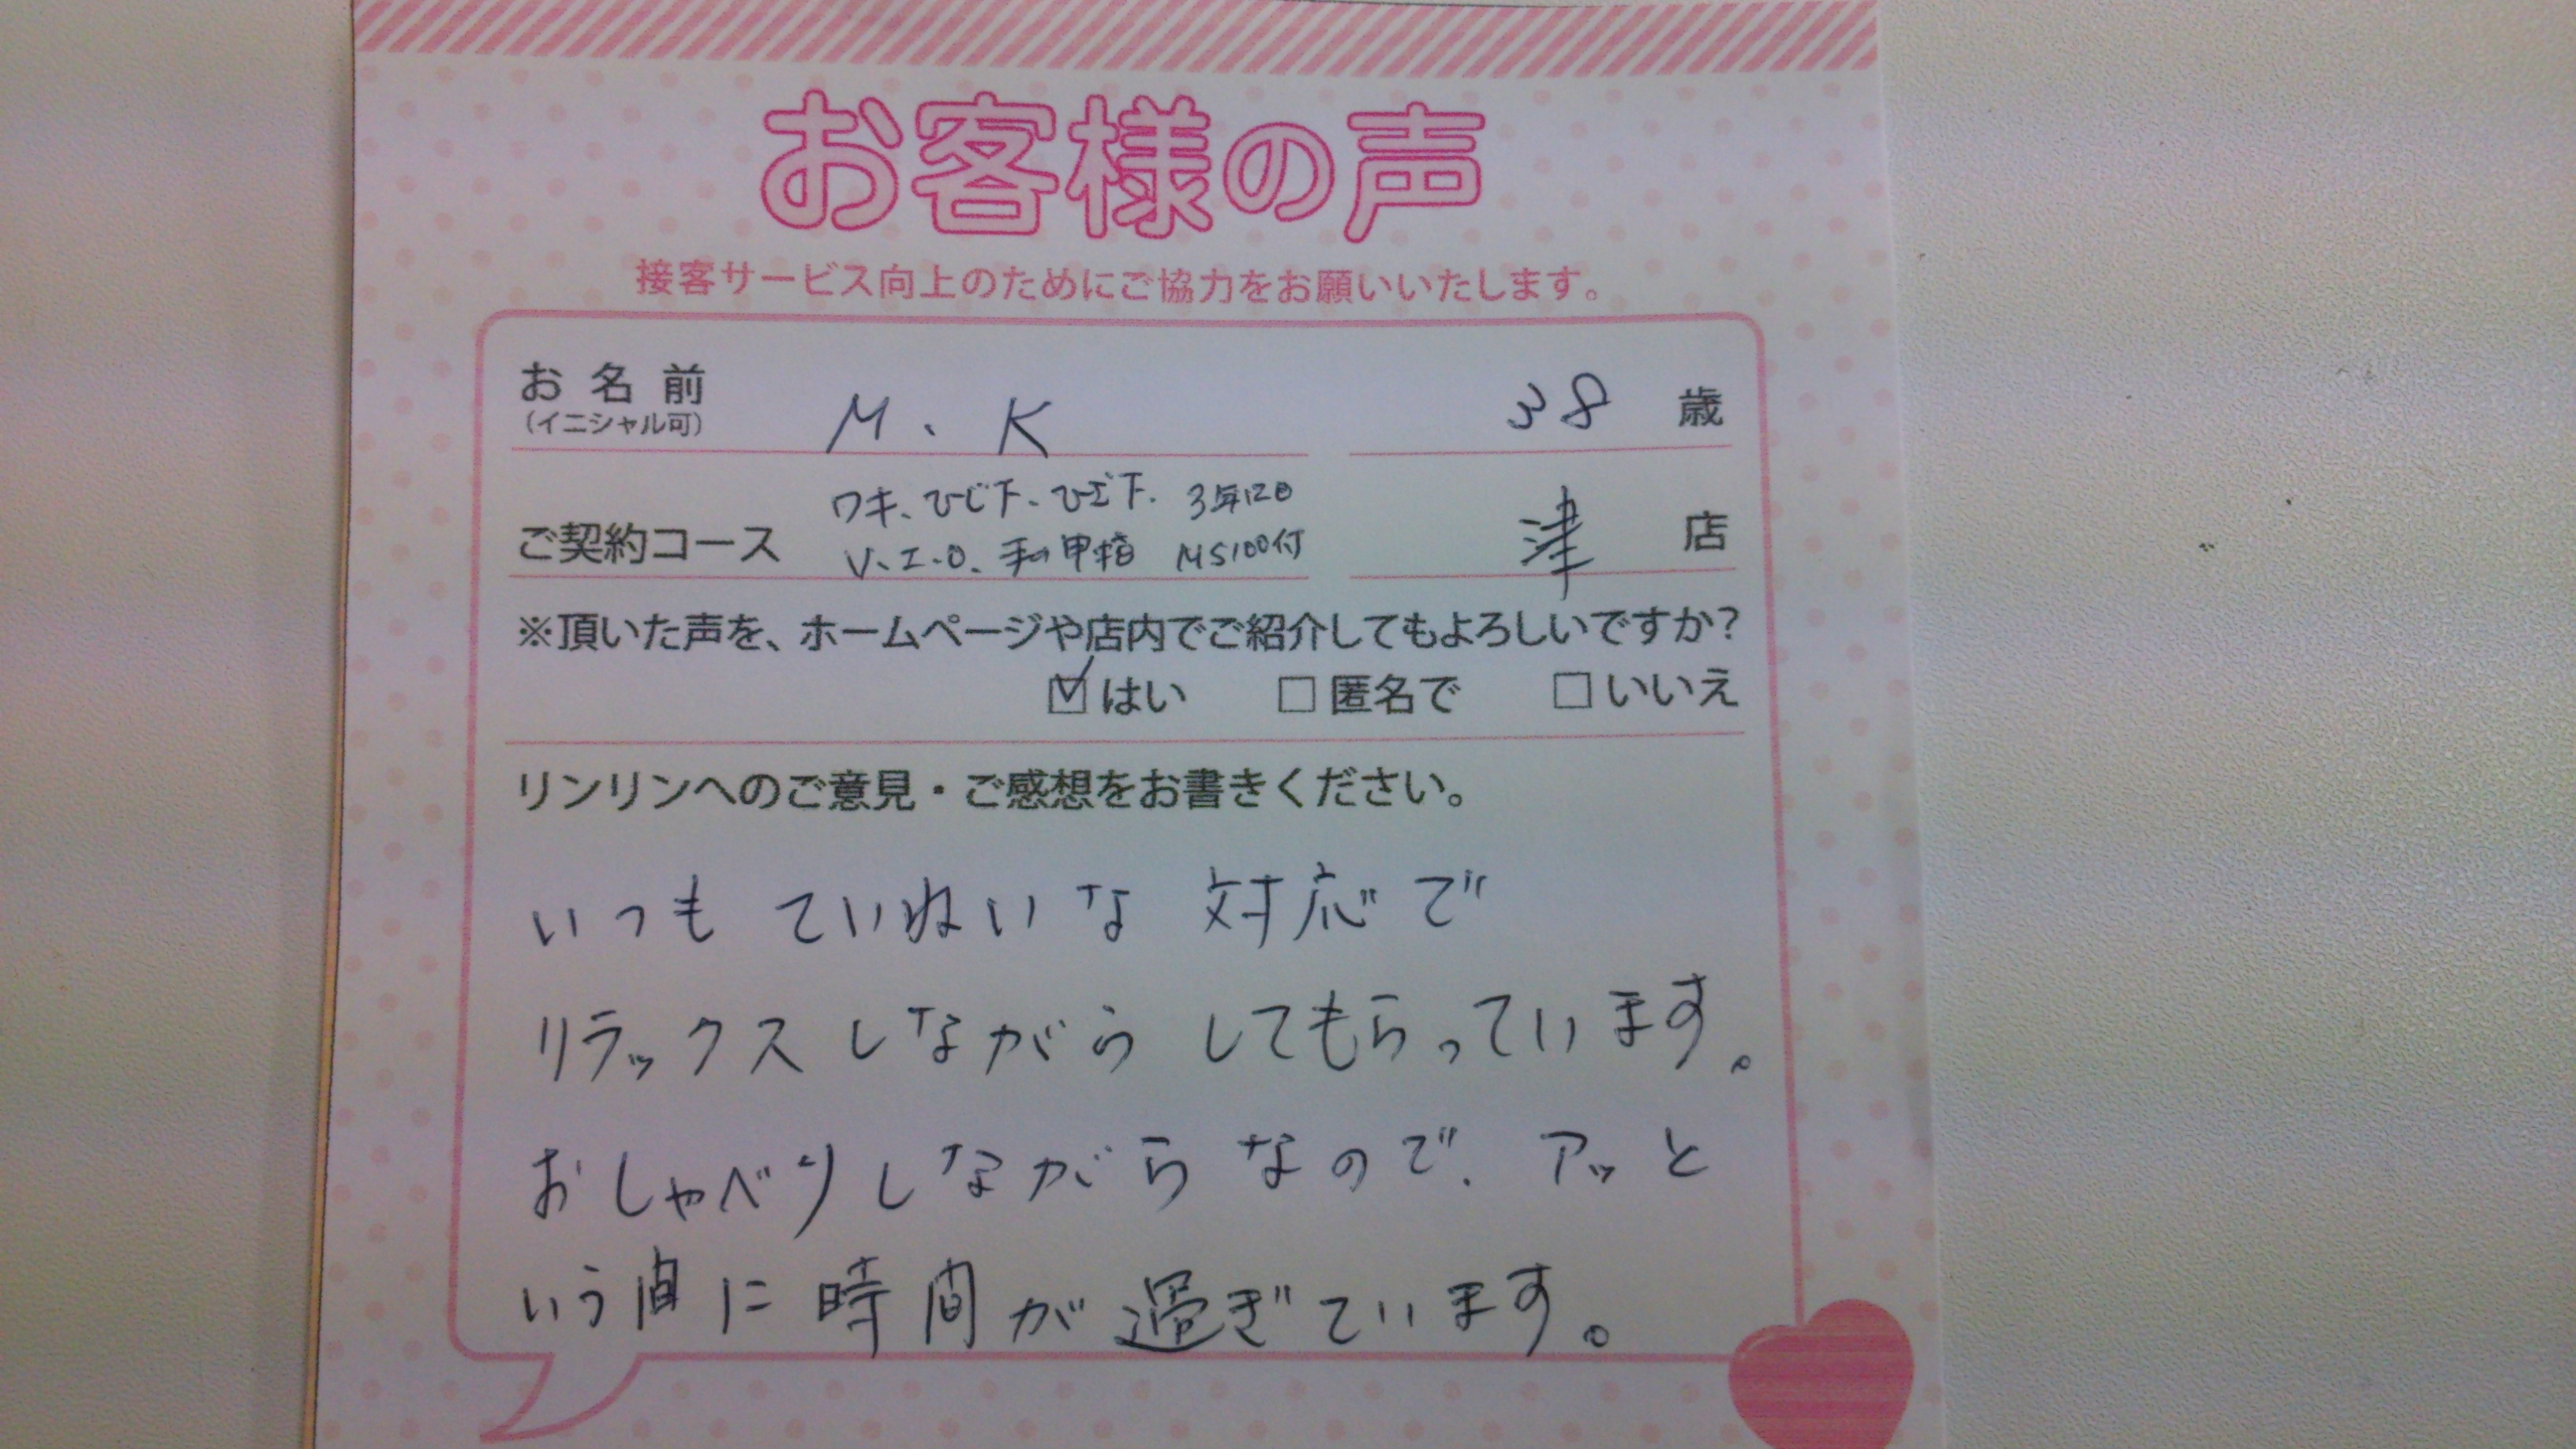 お客様の声
接客サービス向上のためにご協力をお願いいたします。
お名前 M、K 38 歳
(イニシャル可)
ワキ、ひじ下、ひざ下、3年12回
ご契約コース V、I、O、手の甲指 MS100付 津 店
※頂いた声を、ホームページや店内でご紹介してもよろしいですか?
☑はい □匿名で □いいえ
リンリンへのご意見・ご感想をお書きください。
いつも ていねいな 対応で
リラックスしながら してもらっています。
おしゃべりしながらなので、アッと
いう間に時間が過ぎています。